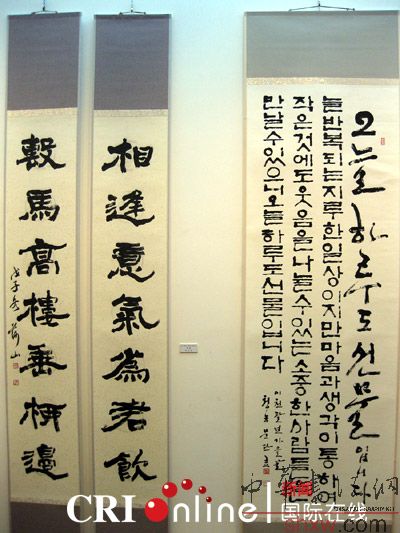 오늘 하루도 선물입니다
늘반복되는지루한일상이지만마음과생각이통하여
작은것에도웃음을나눌수있는소중한사람들을
만날수있으니오늘하루도선물입니다
相逢意氣為君飲
繫馬高樓垂柳邊
戊子冬
CRI online 国际在线